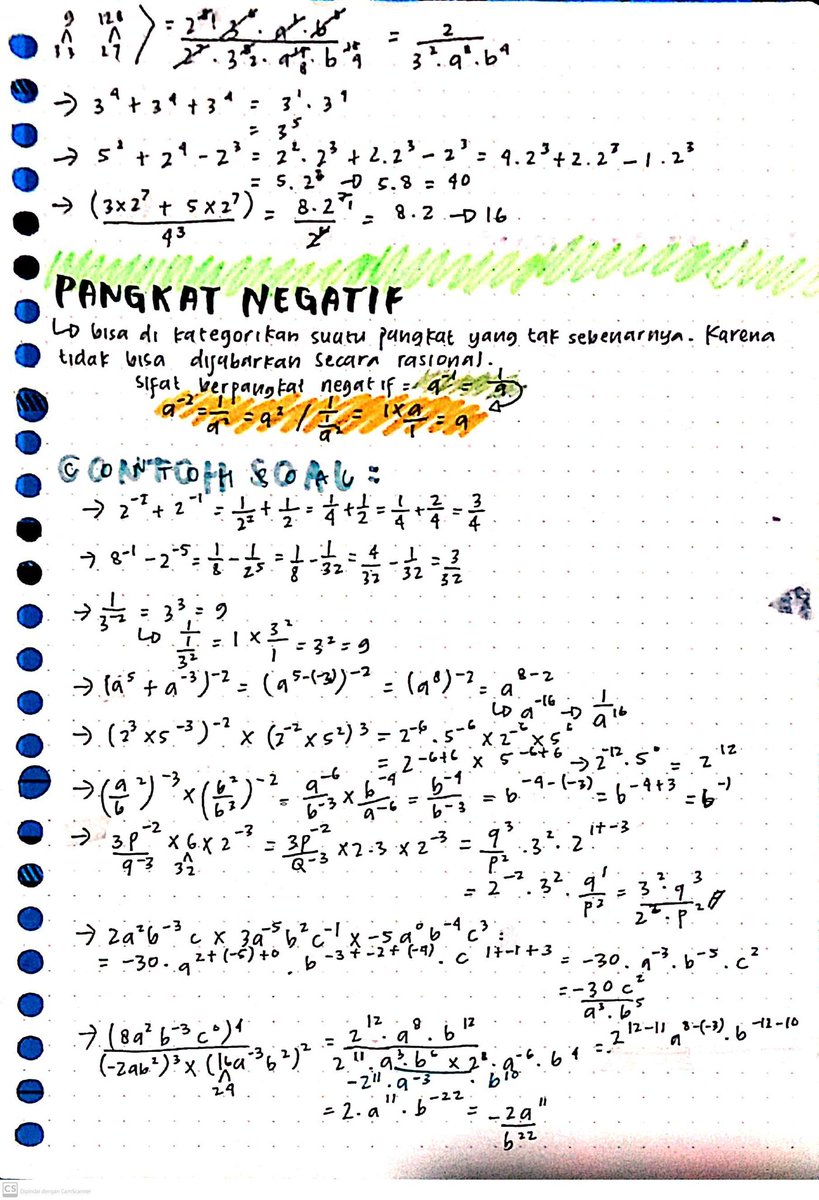 9 128 = 2⁸ · 3⁸ · a⁷ · b⁵ / 2⁷ · 3⁸ 2 · a¹⁵ 8 · b 9 = 2 / 3² · a⁸ · b⁹
→ 3⁴ + 3⁴ + 3⁴ = 3¹ · 3⁴
= 3⁵
→ 5² + 2⁴ - 2³ = 2² · 2³ + 2 · 2³ - 2³ = 4 · 2³ + 2 · 2³ - 1 · 2³
= 5 · 2³ → 5 · 8 = 40
→ (3×2⁷ + 5×2⁷) / 4³ = 8 · 2⁷ ¹ / 2⁶ = 8 · 2 → 16
PANGKAT NEGATIF
↳ bisa di kategorikan suatu pangkat yang tak sebenarnya. Karena
tidak bisa dijabarkan secara rasional.
Sifat berpangkat negatif = a⁻¹ = 1/a
a⁻² = 1/a² = a² / 1/(1/a²) = 1 × a/1 = a
CONTOH SOAL :
→ 2⁻² + 2⁻¹ = 1/2² + 1/2 = 1/4 + 1/2 = 1/4 + 2/4 = 3/4
→ 8⁻¹ - 2⁻⁵ = 1/8 - 1/2⁵ = 1/8 - 1/32 = 4/32 - 1/32 = 3/32
→ 1/3⁻² = 3³ = 9
↳ 1/(1/3²) = 1 × 3²/1 = 3² = 9
→ (a⁵ + a⁻³)⁻² = (a⁵⁻⁽⁻³⁾)⁻² = (a⁸)⁻² = a⁸⁻²
↳ a⁻¹⁶ → 1/a¹⁶
→ (2³ × 5⁻³)⁻² × (2⁻² × 5²)³ = 2⁻⁶ · 5⁻⁶ × 2⁻⁶ × 5⁶
= 2⁻⁶⁺⁶ × 5⁻⁶⁺⁶ → 2⁻¹² · 5⁰ = 2¹²
→ (a/b ²)⁻³ × (b²/b³)⁻² = a⁻⁶/b⁻³ × b⁻⁴/a⁻⁶ = b⁻⁴/b⁻³ = b⁻⁴⁻⁽⁻³⁾ = b⁻⁴⁺³ = b⁻¹
→ 3p⁻²/q⁻³ × 6 × 2⁻³ = 3p⁻²/Q⁻³ × 2 · 3 × 2⁻³ = q³/p² · 3² · 2¹⁺⁻³
32
= 2⁻² · 3² · q¹/p² = 3² · q³ / 2² · p²
→ 2a²b⁻³ c × 3a⁻⁵ b² c⁻¹ × -5a⁰ b⁻⁴ c³ :
= -30 · a²⁺⁽⁻⁵⁾⁺⁰ · b⁻³⁺⁻²⁺⁽⁻⁴⁾ · c¹⁺⁻¹⁺³ = -30 · a⁻³ · b⁻⁵ · c²
= -30 c² / a³ · b⁵
→ (8a² b⁻³ c⁰)⁴ / (-2ab²)³ × (16a⁻³b²)² = 2¹² · a⁸ · b¹² / 2¹¹ · a³ · b⁶ × 2⁸ · a⁻⁶ · b⁴ = 2¹²⁻¹¹ a⁸⁻⁽⁻³⁾ · b⁻¹²⁻¹⁰
24
-2¹¹ · a⁻³ · b¹⁰
= 2 · a¹¹ · b⁻²² = -2a¹¹ / b²²
CS Dipindai dengan CamScanner